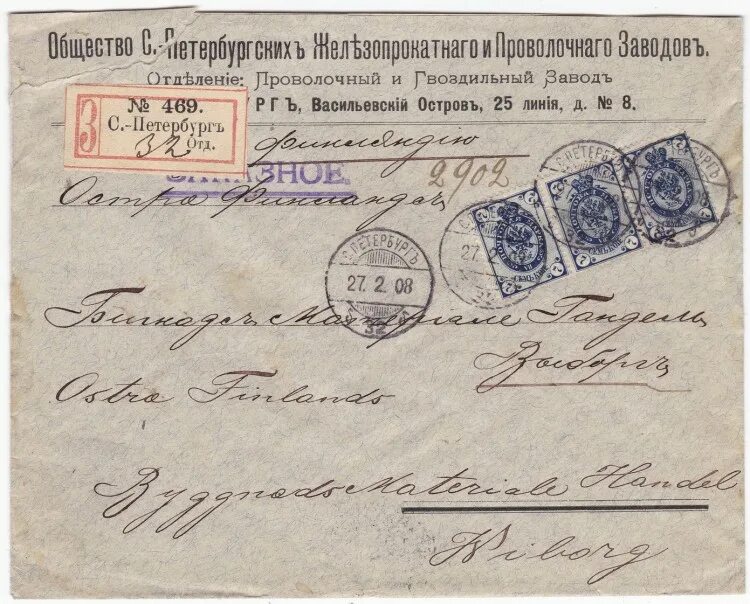 Общество С.-Петербургскихъ Желѣзопрокатнаго и Проволочнаго Заводовъ.
Отдѣленіе: Проволочный и Гвоздильный Заводъ
РГЪ, Васильевскій Островъ, 25 линія, д. № 8.
З
№ 469.
С.-Петербургъ
32 Отд.
Финляндію
ЗАКАЗНОЕ.
2902
Остра Финландсъ
С. ПЕТЕРБУРГЪ
27. 2. 08
32
Бигнадсъ Матеріале Гандель
Выборгъ
Ostra Finlands
Byggnads Materiale Handel
Wiborg